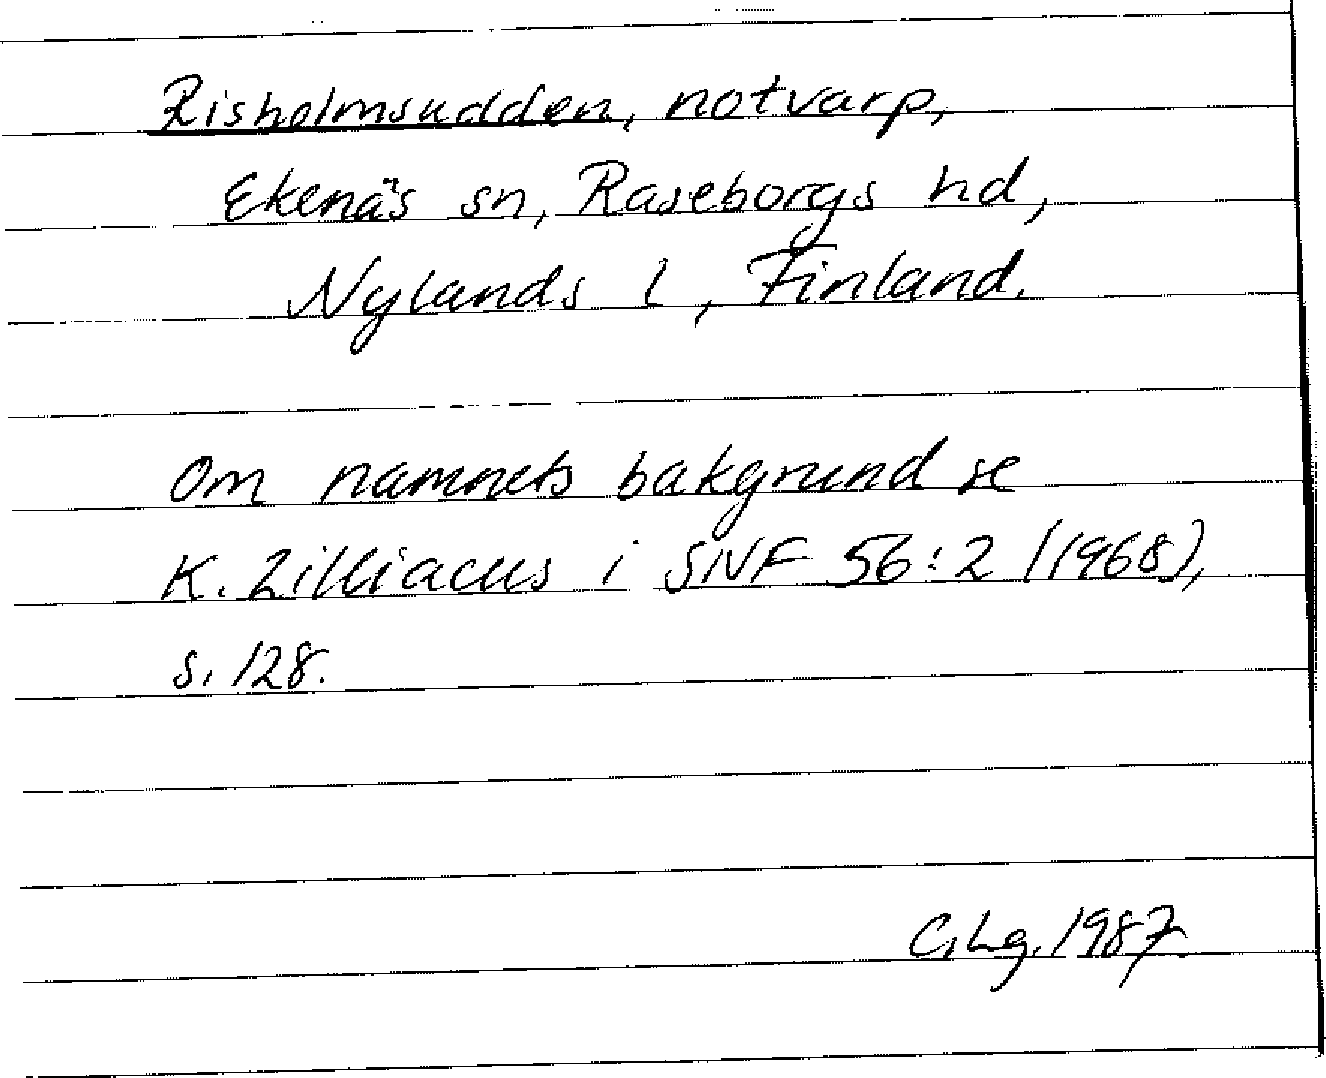 Risholmsudden, notvarp,
Ekenäs sn, Raseborgs hd,
Nylands l, Finland.
Om namnets bakgrund se
K. Zilliacus i SNF 56:2 (1968),
s. 128.
C.Lg. 1987